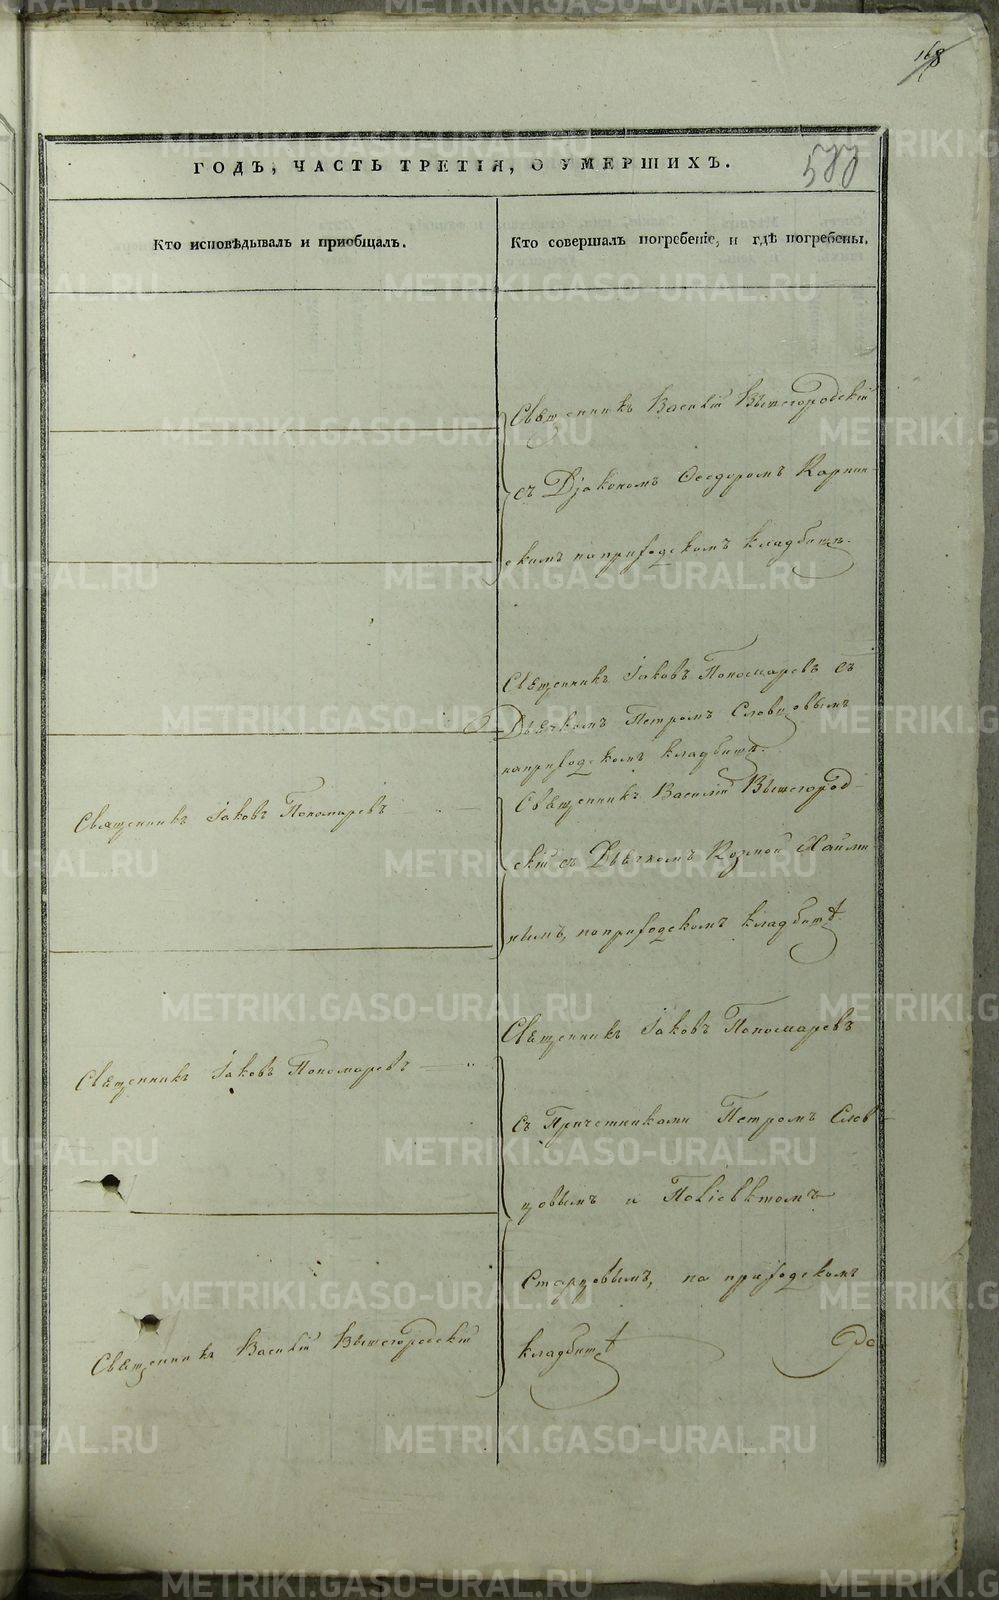 168
577
ГОДЪ, ЧАСТЬ ТРЕТІЯ, О УМЕРШИХЪ.
Кто исповѣдывалъ и приобщалъ.
Кто совершалъ погребеніе, и гдѣ погребены.
Священникъ Василій Вышегородскій
съ Діякономъ Ѳеодоромъ Карпин-
скимъ на приходскомъ кладбищѣ.
Священникъ Іаковъ Пономаревъ съ
Дьячкомъ Петромъ Словцовымъ
на приходскомъ кладбищѣ.
Священникъ Іаковъ Пономаревъ
Священникъ Василій Вышегород-
скій съ Дьячкомъ Козмой
нымъ, на приходскомъ кладбищѣ.
Священникъ Іаковъ Пономаревъ
Священникъ Іаковъ Пономаревъ
съ Причетниками Петромъ Слов-
цовымъ и Поліевктомъ
Старцовымъ, на приходскомъ
Священникъ Василій Вышегородскій
кладбищѣ
METRIKI.GASO-URAL.RU